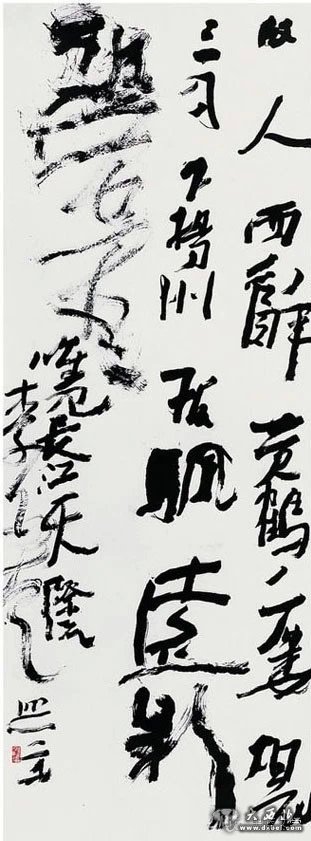 故人西辭黃鶴樓
三月下揚州孤帆遠影
碧空盡
唯見長江天際流
大西北
www.dxbei.com